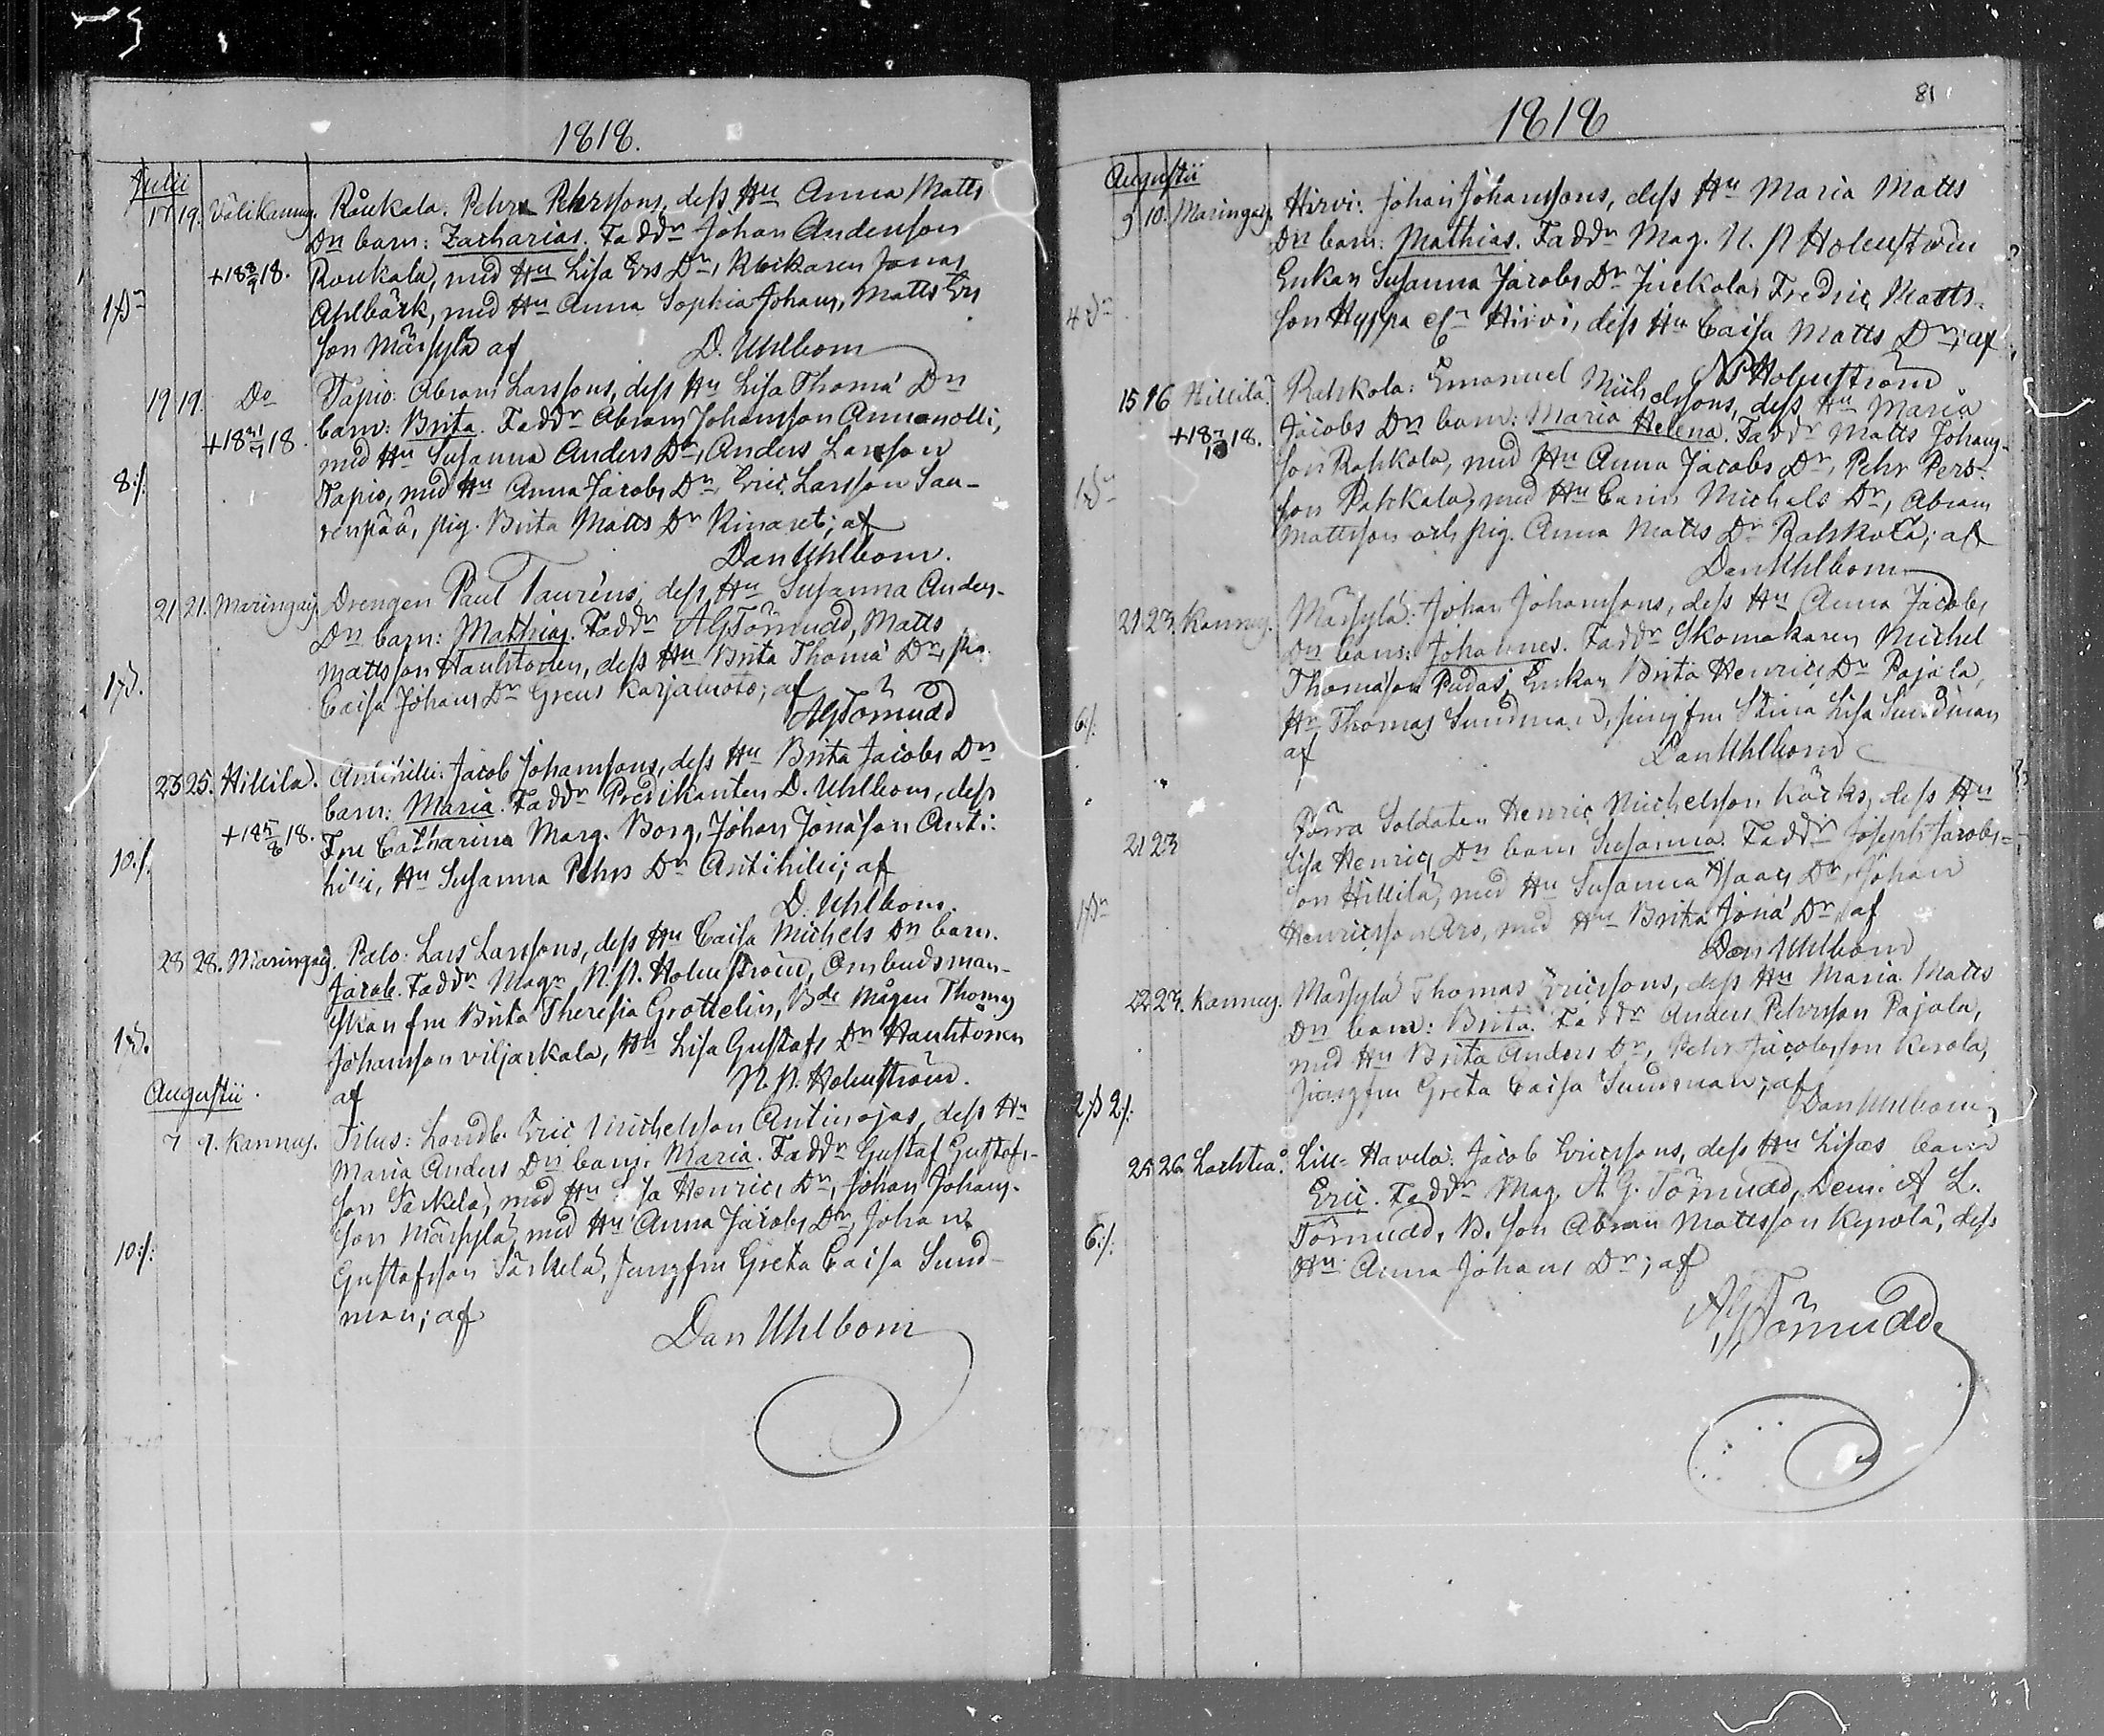 1818.
Julii
17 19. Välikannus. Råukala. Pehrs Pehrssons, dess Hu Anna Matts
Dn barn: Zacharias. Faddr Johan Andersson
+18 18. Roukala, med Hu Lisa Ers Dr, Jonas
Ahlbäck, med Hu Anna Sophia Johans, Matts Ers
son Märsylä af D. Uhlbom
19 19. Do Tapio: Abram Larssons, dess Hu Lisa Thomæ Dn
barn: Brita. Faddr Abram Johansson Annonolli,
+18 18. med Hu Susanna Anders Dr, Anders Larsson
8:/. Tapio, med Hu Anna Jacobs Dr, Eric Larsson Saa-
renpää, pig. Brita Matts Dr; af
Dan Uhlbom.
21 21. Maringais. Drengen Paul Tauréns, dess Hu Susanna Anders
Dn barn: Mathias. Faddr AGTörnudd, Matts
Mattsson Hauhtonen, dess Hu Brita Thomæ Dr, pig.
Caisa Johans Dr Greus Karjaluoto; af
AGTörnudd
23 25. Hillilä. Antihilli: Jacob Johanssons, dess Hu Brita Jacobs Dn
barn: Maria. Faddr Predikanten D. Uhlbom, dess
+18 5/8 18. Fru Catharina Marg. Borg, Johan Jonasson Anti-
10:/. hilli, Hu Susanna Pehrs Dr Antihilli; af
D. Uhlbom.
28 28. Maringais. Palo: Lars Larssons, dess Hu Caisa Michels Dn barn.
Jacob. Faddr Magr N. P. Holmström, Ombudsman-
skan fru Brita Theresia Grottelin, Bde Mågen Thomas
Johansson Viljakkala, Hu Lisa Gustafs Dr Hauhtonen
af N. P. Holmström.
Augustii.
7 9. Kannus. Filus: Landb. Eric Michelsson Antinojas, dess Hu
Maria Anders Dn barn: Maria. Faddr Gustaf Gustafs-
son Särkelä, med Hu Lisa Henrics Dr, Johan Johans-
son Märsylä, med Hu Anna Jacobs Dr, Johan
10:/: Gustafsson Särkelä, Jungfru Greta Caisa Sund-
man; af
Dan Uhlbom
81
1818
Augustii
9 10. Maringais. Hirvi: Johan Johanssons, dess Hu Maria Matts
Dn barn: Mathias. Faddr Mag. N. P Holmström
Enkan Susanna Jacobs Dr Juckola, Fredric Matts-
son Hyppä Hirvi, dess Hu Caisa Matts Dr; af
NPHolmström
15 16 Hillilä. Rahkola: Emanuel Michelssons, dess Hu Maria
Jacobs Dn barn: Maria Helena. Faddr Matts Johans-
+18 18. son Rahkola, med Hu Anna Jacobs Dr, Pehr Pers-
son Rahkola, med Hu Carin Michels Dr, Abram
Mattsson och pig. Anna Matts Dr Rahkola; af
Dan Uhlbom
21 23. Kannus. Märsylä: Johan Johanssons, dess Hu Anna Jacobs
Dn barn: Johannes. Faddr Skomakaren Michel
Thomasson Padas, Enkan Brita Henrics Dr Pajala,
6:/. Hr Thomas Sundman, jungfru Stina Lisa Sundman
af Dan Uhlbom
21 23 Förra Soldaten Henric Michelsson Käcks, dess Hu
Lisa Henrics Dn barn Susanna. Faddr Joseph Jacobs-
son Hillilä, med Hu Susanna Isaacs Dr, Johan
Henricsson Aro, med Hu Brita Jonæ Dr, af
Dan Uhlbom
22 23. Kannus. Märsylä Thomas Ericssons, dess Hu Maria Matts
Dn barn: Brita. Faddr Anders Pehrsson Pajala,
med Hu Brita Anders Dr, Pehr Jacobsson Kerola,
Jungfru Greta Caisa Sundman; af
Dan Uhlbom
25 26. Lochteå. Lill-Havela: Jacob Ericssons, dess Hu Lisas barn
Eric. Faddr Mag. A. G. Törnudd, Dem. A L.
6:/. Törnudd, B. Son Abram Mattsson Kyrölä, dess
Hu Anna Johans Dr; af
AGTörnudd